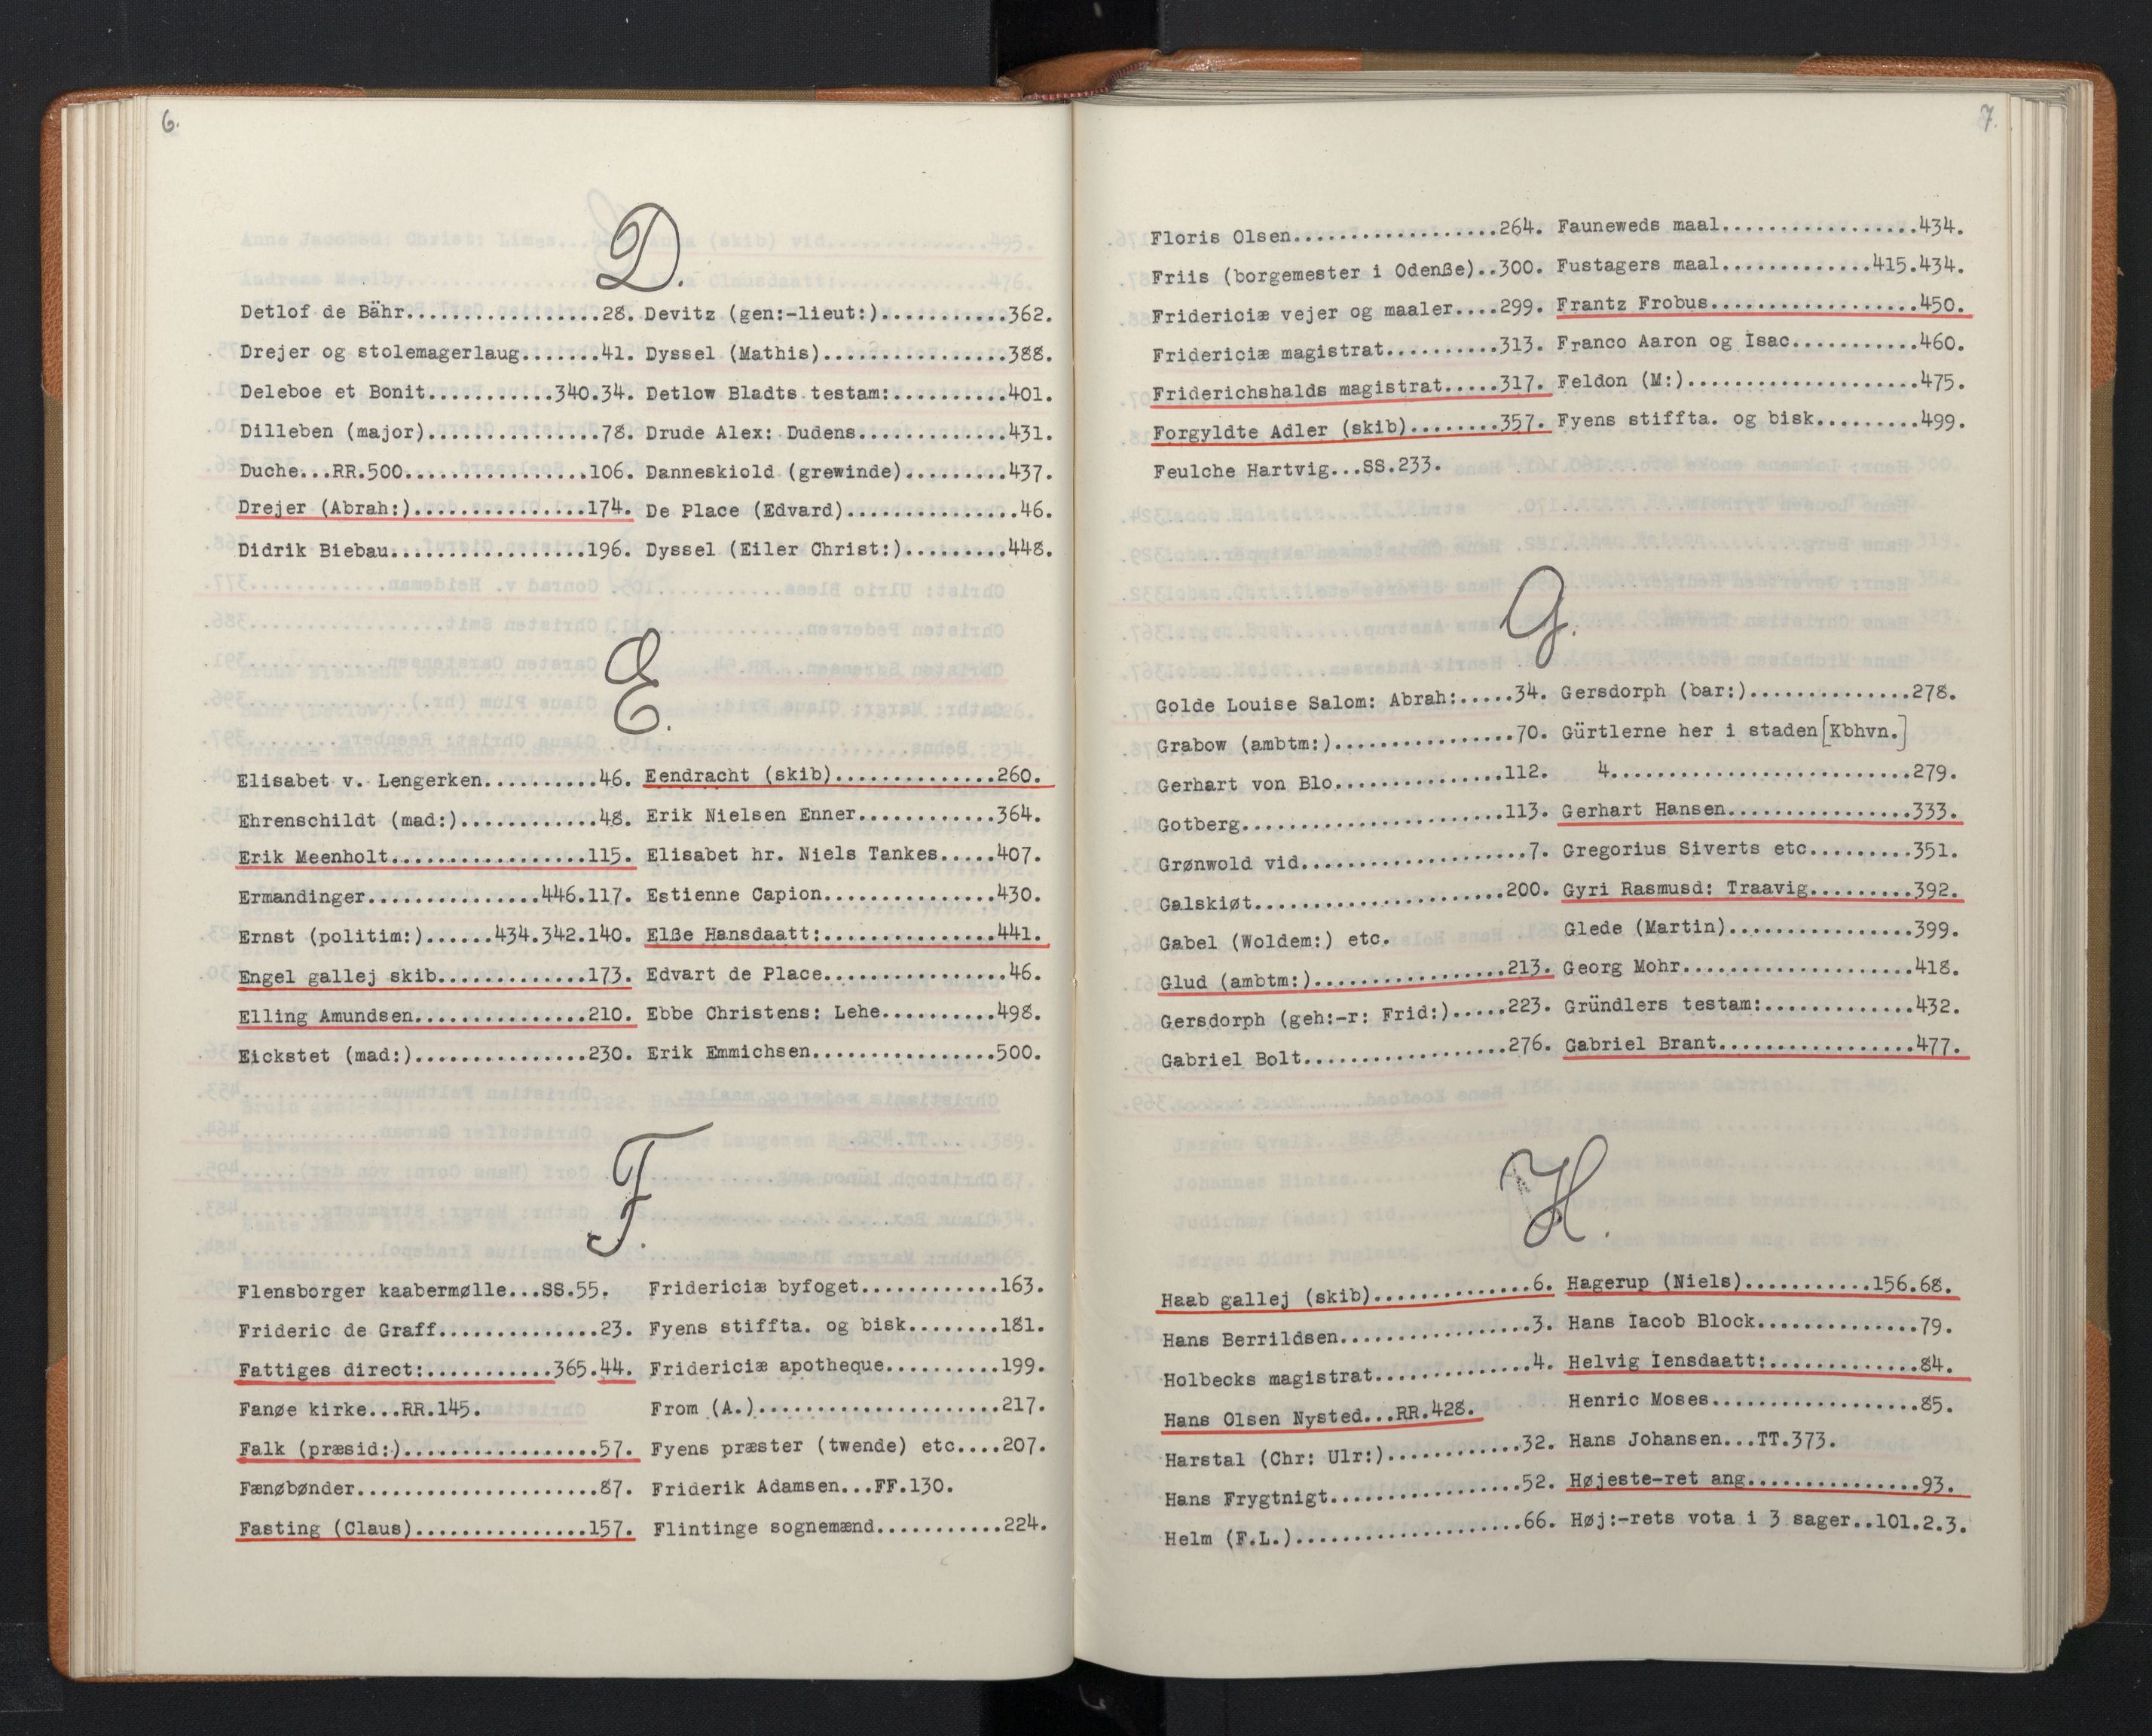 6.
D.
Detlof de Bähr.................28.
Drejer og stolemagerlaug.......41.
Deleboe et Bonit...........340.34.
Dilleben (major)...............78.
Duche...RR.500................106.
Drejer (Abrah:)...............174.
Didrik Biebau.................196.
Devitz (gen:-lieut:)...........362.
Dyssel (Mathis)................388.
Detlow Bladts testam:..........401.
Drude Alex: Dudens.............431.
Danneskiold (grewinde).........437.
De Place (Edvard)...............46.
Dyssel (Eiler Christ:).........448.
E.
Elisabet v. Lengerken..........46.
Ehrenschildt (mad:)............48.
Erik Meenholt.................115.
Ermandinger...............446.117.
Ernst (politim:)......434.342.140.
Engel gallej skib.............173.
Elling Amundsen...............210.
Eickstet (mad:)...............230.
Eendracht (skib)..............260.
Erik Nielsen Enner............364.
Elisabet hr. Niels Tankes.....407.
Estienne Capion...............430.
Elße Hansdaatt:...............441.
Edvart de Place................46.
Ebbe Christens: Lehe..........498.
Erik Emmichsen................500.
F.
Flensborger kaabermølle...SS.55.
Frideric de Graff..............23.
Fattiges direct:...........365.44.
Fanøe kirke...RR.145.
Falk (præsid:).................57.
Fænøbønder.....................87.
Fasting (Claus)...............157.
Fridericiæ byfoget............163.
Fyens stiffta. og bisk........181.
Fridericiæ apotheque..........199.
From (A.).....................217.
Fyens præster (twende) etc....207.
Friderik Adamsen...FF.130.
Flintinge sognemænd...........224.
7.
Floris Olsen..................264.
Friis (borgemester i Odenße)..300.
Fridericiæ vejer og maaler....299.
Fridericiæ magistrat..........313.
Friderichshalds magistrat.....317.
Forgyldte Adler (skib)........357.
Feulche Hartvig...SS.233.
Fauneweds maal.................434.
Fustagers maal.............415.434.
Frantz Frobus..................450.
Franco Aaron og Isac...........460.
Feldon (M:)....................475.
Fyens stiffta. og bisk.........499.
G.
Golde Louise Salom: Abrah:.....34.
Grabow (ambtm:)................70.
Gerhart von Blo...............112.
Gotberg.......................113.
Grønwold vid....................7.
Galskiøt......................200.
Gabel (Woldem:) etc.
Glud (ambtm:).................213.
Gersdorph (geh:-r: Frid:).....223.
Gabriel Bolt..................276.
Gersdorph (bar:)..............278.
Gürtlerne her i staden [Kbhvn.]
4..........................279.
Gerhart Hansen................333.
Gregorius Siverts etc.........351.
Gyri Rasmusd: Traavig.........392.
Glede (Martin)................399.
Georg Mohr....................418.
Gründlers testam:.............432.
Gabriel Brant.................477.
H.
Haab gallej (skib)..............6.
Hans Berrildsen.................3.
Holbecks magistrat..............4.
Hans Olsen Nysted...RR.428.
Harstal (Chr: Ulr:)............32.
Hans Frygtnigt.................52.
Helm (F.L.)....................66.
Hagerup (Niels)...........156.68.
Hans Iacob Block..............79.
Helvig Iensdaatt:.............84.
Henric Moses..................85.
Hans Johansen...TT.373.
Højeste-ret ang...............93.
Høj:-rets vota i 3 sager..101.2.3.